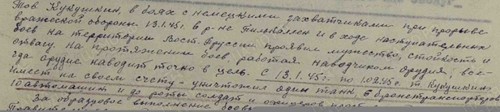 Тов. Кукушкин, в боях с немецкими захватчиками при прорыве
вражеской обороны 13.1.45г. в р-не Пилькаллен и в ходе наступательных
боев на территории Вост. Пруссии проявил мужество, стойкость и
отвагу. На протяжении боев, работая наводчиком орудия, все-
гда орудие наводит точно в цель. С 13.1.45г. по Кукушкин
имеет на своем счету - уничтожил один танк, бронетранспортера
автомашин и до роты солдат и офицеров
За образцовое выполнение